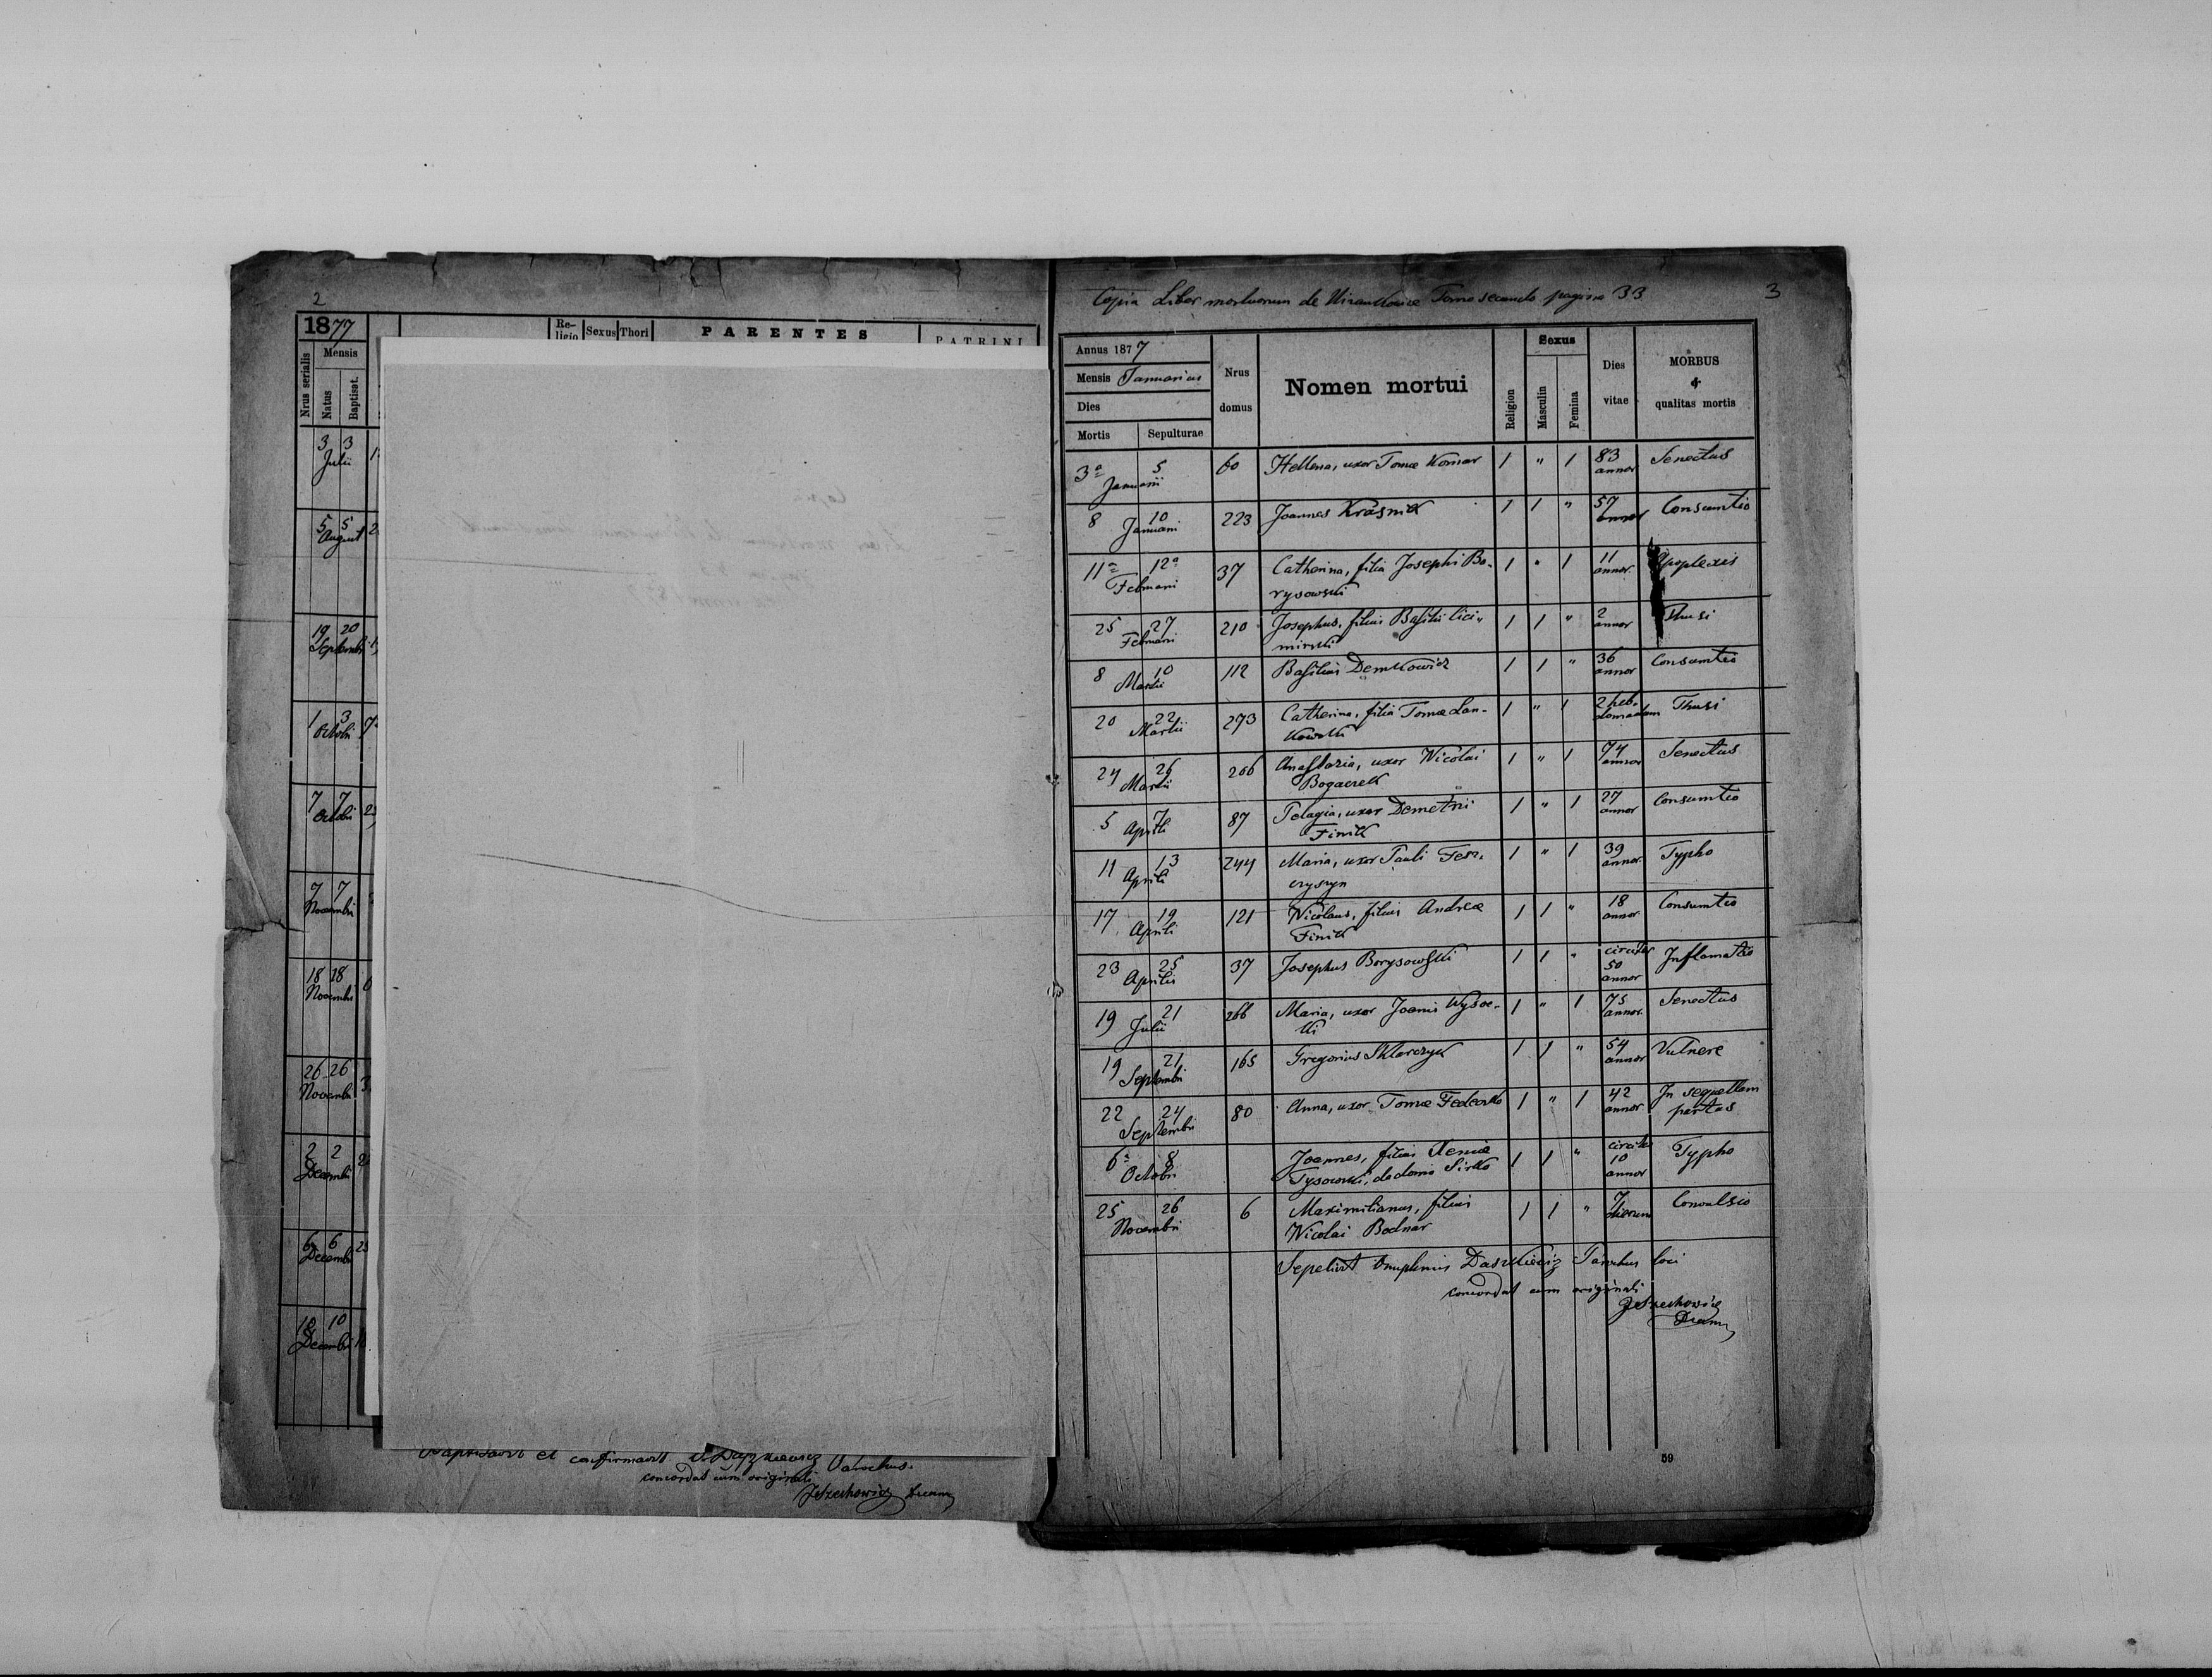 2
1877
Re-
ligio
Sexus
Thori
PARENTES
PATRINI
Nrus serialis
Mensis
Natus
Baptisat.
3 3
Julii
5 5
August
19 20
Septembr
1 3
Octobri
7 7
Octobri
7 7
Novembri
18 18
Novembri
26 26
Novembri
2 2
Decembri
6 6
Decembri
10 10
Decembri
Baptisavit et confirmavit Parochus.
concordat cum originali
Copia Liber mortuorum de Tomo secundo pagina 33
3
Annus 1877
Mensis Januarius
Dies
Mortis
Sepulturae
Nrus
domus
Nomen mortui
Religion
Sexus
Masculin
Femina
Dies
vitae
MORBUS
&
qualitas mortis
3a 5 60 Hellena, uxor Tomæ Komar 1 " 1 83 Senectus
Januarii annor
8 10 223 Joannes Krasnik 1 1 " 57 Consumtio
Januarii annor
11a 12a 37 Catherina, filia Josephi Bo- 1 " 1 11 Apoplexis
Februarii rysowski annor.
25 27 210 Josephus, filius Basilii Cici- 1 1 " 2 Thusi
Februarii mirski annor
8 10 112 Basilius Demkowicz 1 1 " 36 Consumtio
Martii annor
20 22 273 Catherina, filia Tomæ Lan- 1 " 1 2 heb- Thusi
Martii kowski domadam
24 26 266 Anastazia, uxor Nicolai 1 " 1 74 Senectus
Martii Bogaczek annor
5 7 87 Pelagia, uxor Demetrii 1 " 1 27 Consumtio
Aprili Finik annor
11 13 244 Maria, uxor Pauli Fesz- 1 " 1 39 Typho
Aprili czyszyn annor.
17 19 121 Nicolaus, filius Andreæ 1 1 " 18 Consumtio
Aprili Finik annor.
23 25 37 Josephus Borysowski 1 1 " circiter Inflamatio
Aprilis 50
annor
19 21 266 Maria, uxor Joanis Wysoc- 1 " 1 75 Senectus
Julii ki annor.
19 21 165 Gregorius Sklarczyk 1 1 " 54 Vulnere
Septembri annor
22 24 80 Anna, uxor Tomæ Fedorko 1 " 1 42 In sequellam
Septembri annor partus
6a 8 Joannes, filius Xeniæ 1 1 " circiter Typho
Octobri Tysowski, de domo Sirko 10
annor
25 26 6 Maximilianus, filius 1 1 " 7 Convulsio
Novembri Nicolai Bodnar dierum
Sepelivit Onuphrius Daszkiewicz Parochus loci
concordat cum originali
59